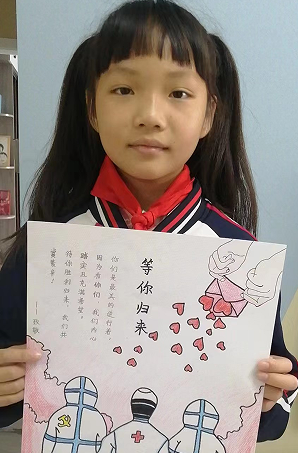 等你归来
你们是最美的逆行者，
因为有你们 我们内心
踏实且充满希望。
待你胜利归来，我们
——致敬